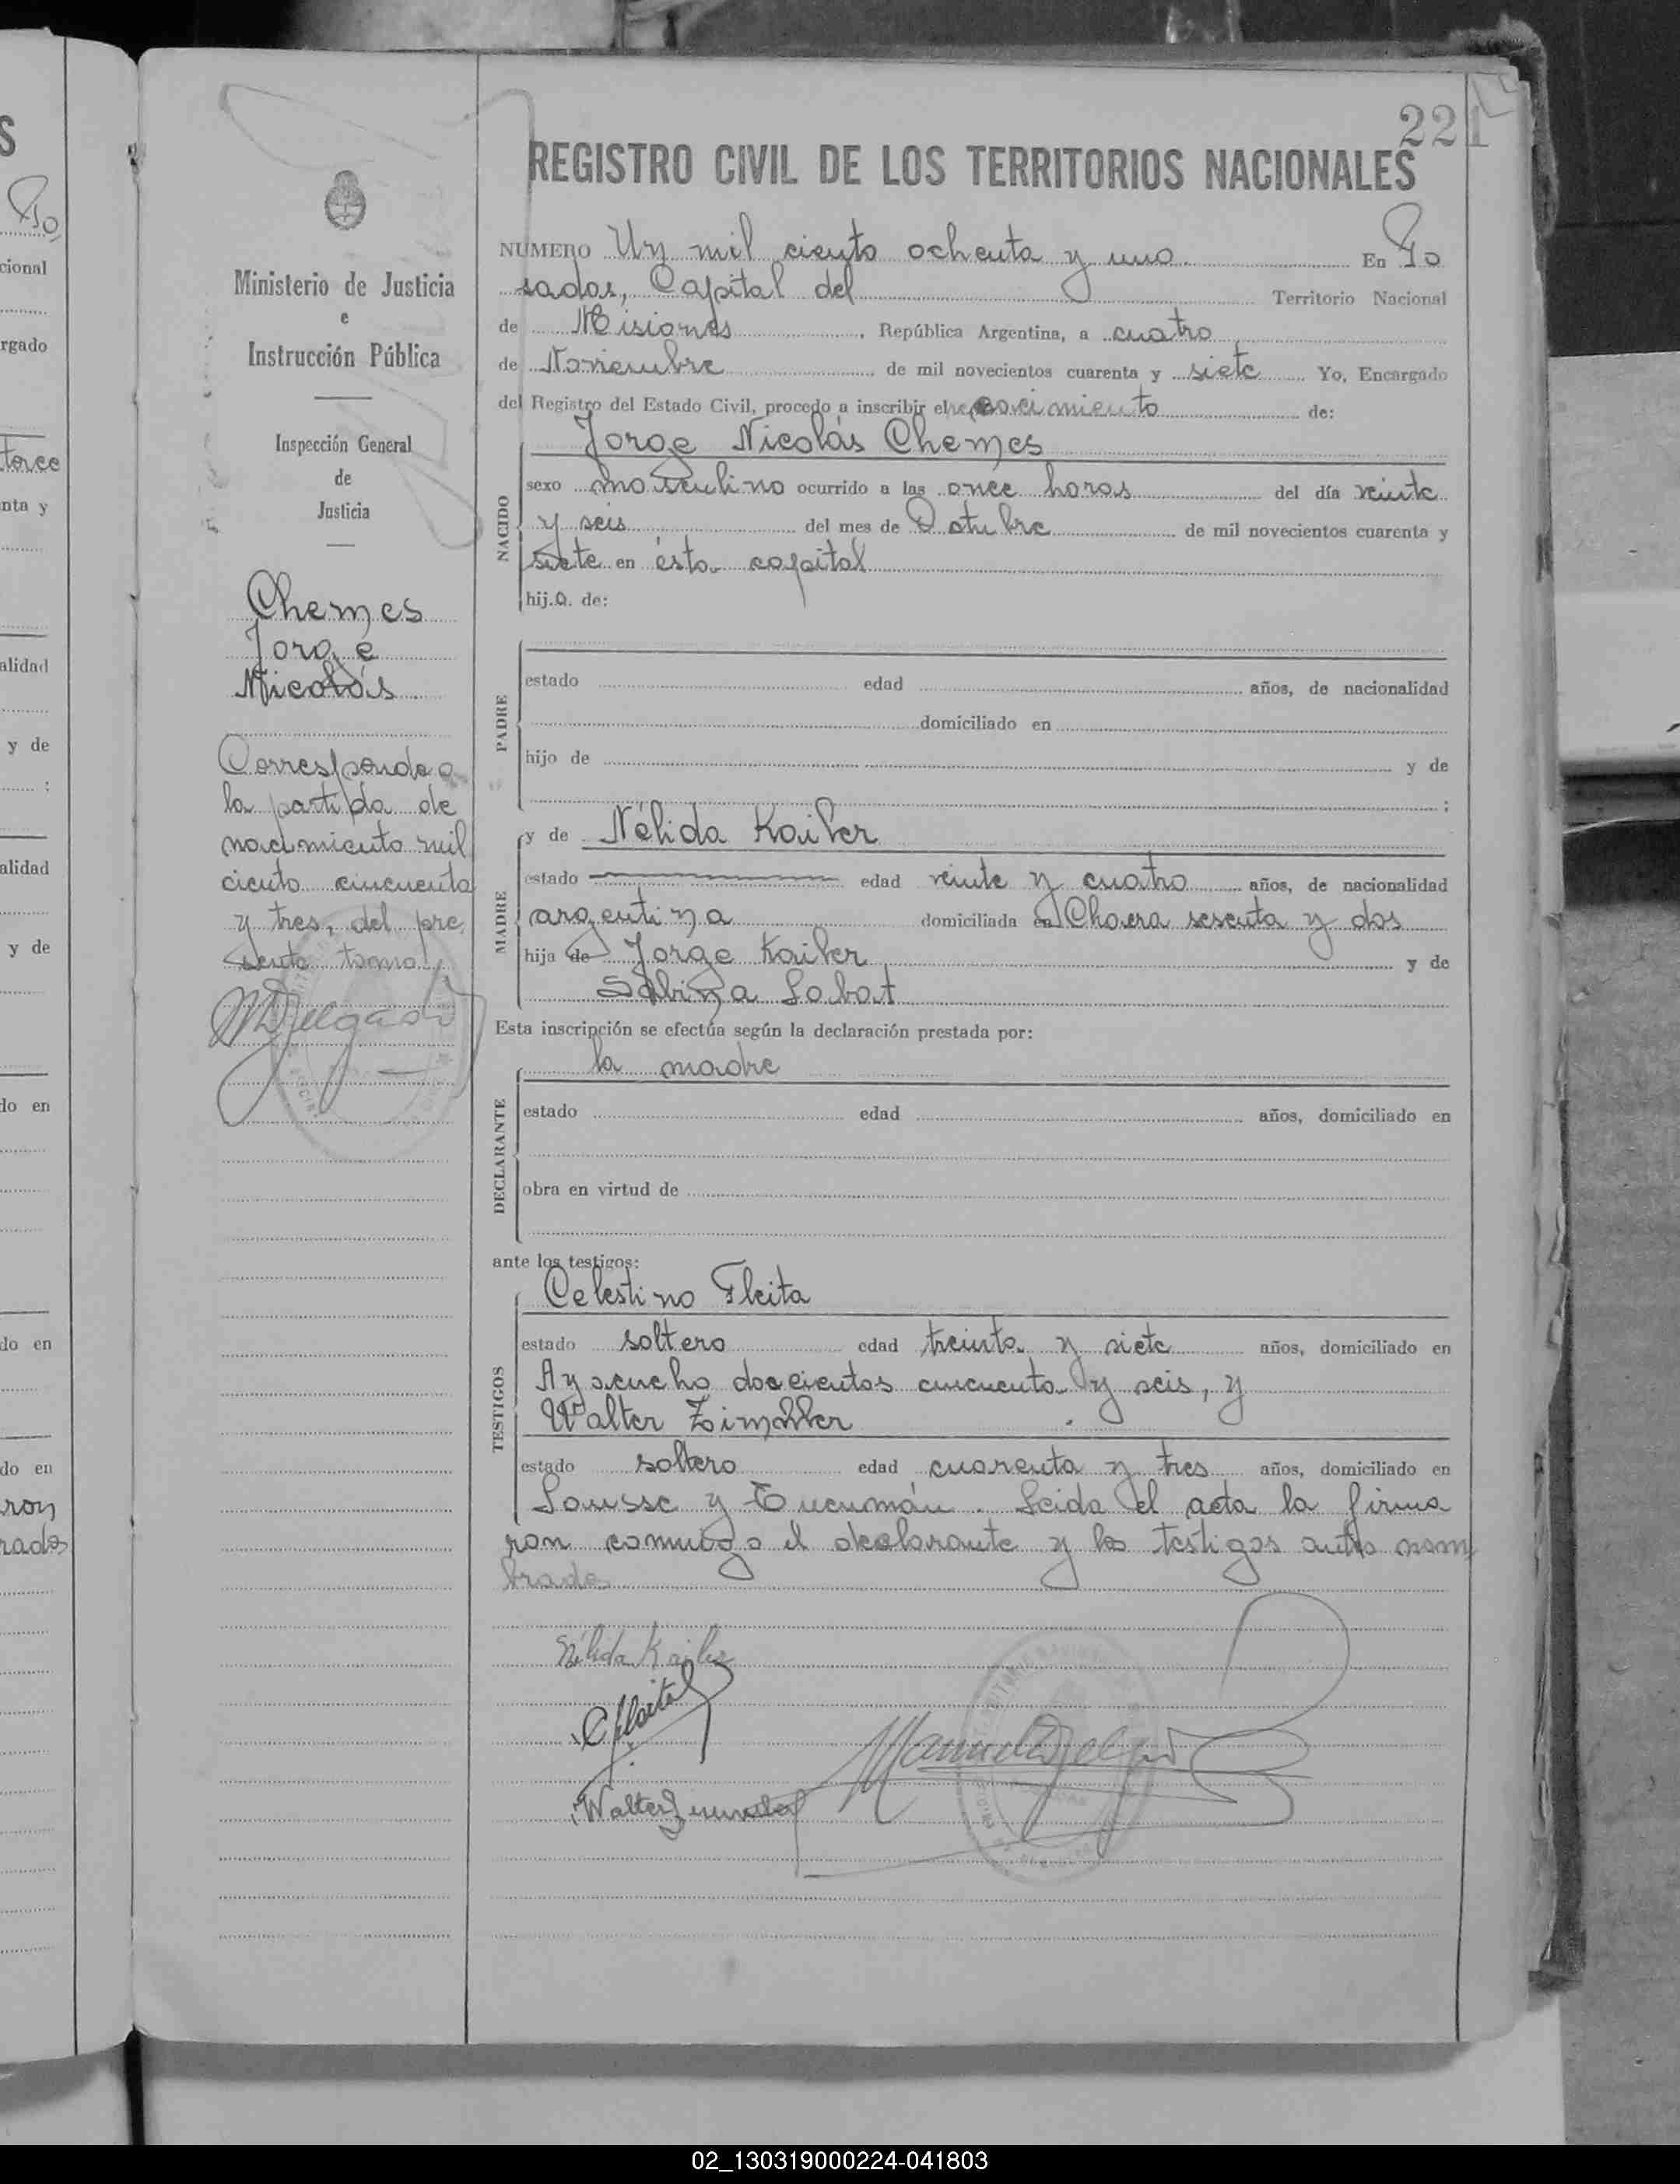 221
REGISTRO CIVIL DE LOS TERRITORIOS NACIONALES
Ministerio de Justicia
e
Instrucción Pública
Inspección General
de
Justicia
Chemes
Jorge
Nicolás
Corresponde a
la partida de
nacimiento mil
ciento cincuenta
y tres, del pre
sente tomo
NUMERO Un mil ciento ochenta y uno En Po
sadas, Capital del Territorio Nacional
de Misiones, República Argentina, a cuatro
de Noviembre de mil novecientos cuarenta y siete Yo, Encargado
del Registro del Estado Civil, procedo a inscribir el reconocimiento de:
NACIDO
Jorge Nicolás Chemes
sexo masculino ocurrido a las once horas del día veinte
y seis del mes de Octubre de mil novecientos cuarenta y
siete en ésta capital
hij.o. de:
PADRE
estado edad años, de nacionalidad
domiciliado en
hijo de y de
;
MADRE
y de Nélida Kailer
estado edad veinte y cuatro años, de nacionalidad
argentina domiciliada en Chacra sesenta y dos
hija de Jorge Kailer y de
Sabina Labat
Esta inscripción se efectúa según la declaración prestada por:
la madre
DECLARANTE
estado edad años, domiciliado en
obra en virtud de
ante los testigos:
TESTIGOS
Celestino Fleita
estado soltero edad treinta y siete años, domiciliado en
Ayacucho doscientos cincuenta y seis, y
Walter
estado soltero edad cuarenta y tres años, domiciliado en
y Tucumán. Leida el acta la firma
ron conmigo el declarante y los testigos antes nom
brados
Nélida Kailer
CFleita
Walter
02_130319000224-041803